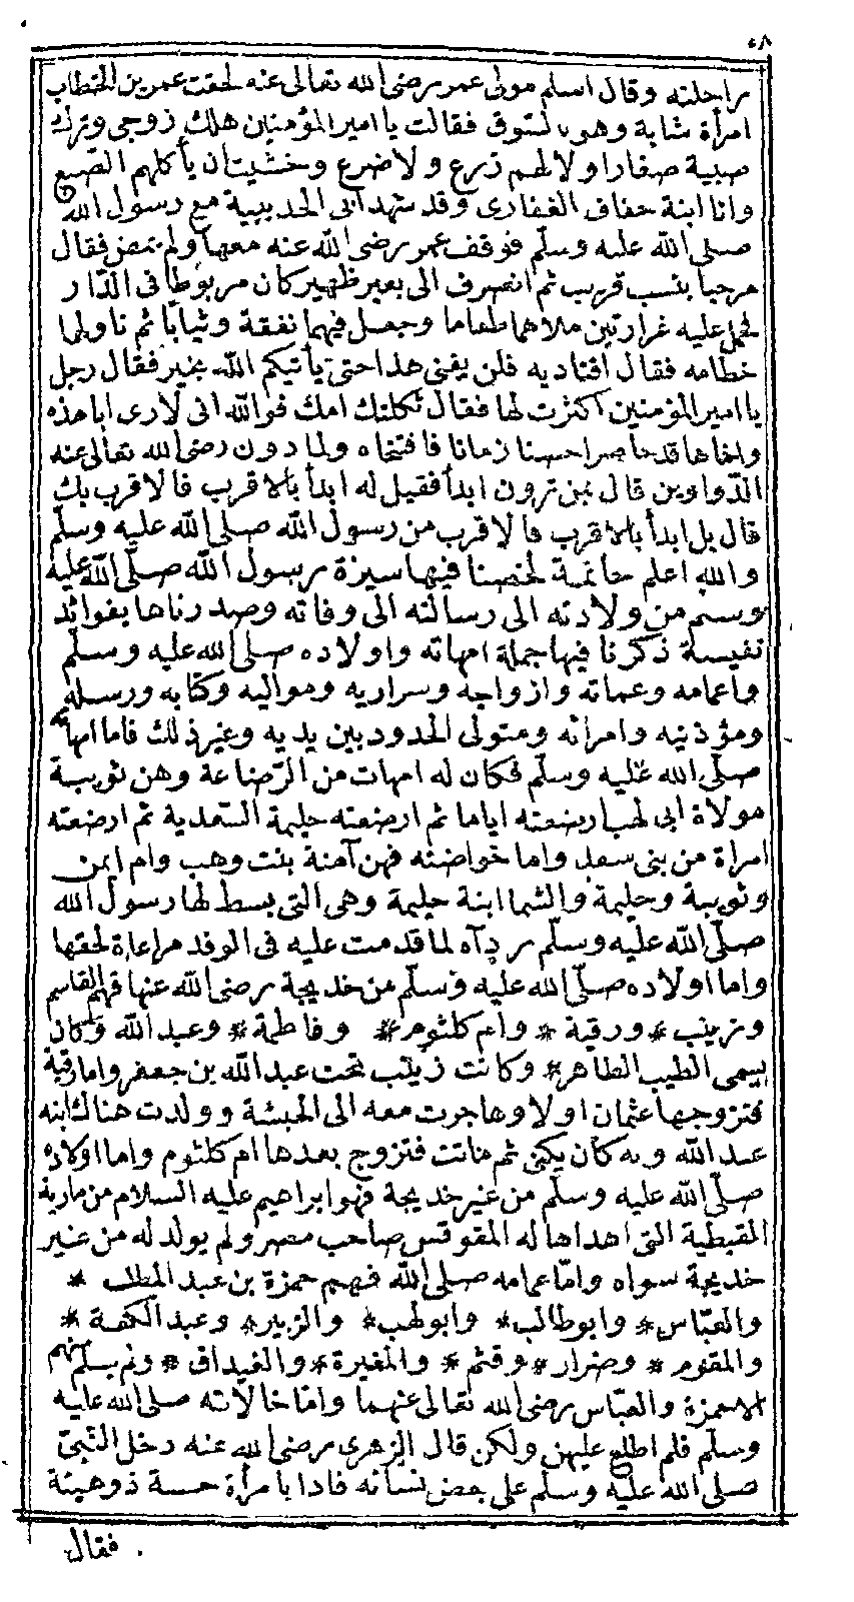 ٤٨
راحلته وقال اسلم مولى عمر رضى الله تعالى عنه لحقت عمر بن الخطاب
امرأة شابة وهو بالسوق فقالت يا امير المؤمنين هلك زوجى وترك
صبية صغارا ولا لهم زرع ولا ضرع وخشيت ان يأكلهم الضبع
وانا ابنة خفاف الغفارى وقد شهد ابى الحديبية مع رسول الله
صلى الله عليه وسلم فوقف عمر رضى الله عنه معها ولم يمض فقال
مرحبا بنسب قريب ثم انصرف الى بعير ظهير كان مربوطا فى الدار
فحمل عليه غرارتين ملاهما طعاما وجعل فيهما نفقة وثيابا ثم ناولها
خطامه فقال اقتاديه فلن يفنى هذا حتى يأتيكم الله بخير فقال رجل
يا امير المؤمنين اكثرت لها فقال ثكلتك امك فوالله انى لارى ابا هذه
واخاها قد حاصرا حصنا زمانا فافتتحاه ولما دون رضى الله تعالى عنه
الدواوين قال بمن ترون ابدأ فقيل له ابدأ بالاقرب فالاقرب بك
قال بل ابدأ بالاقرب فالاقرب من رسول الله صلى الله عليه وسلم
والله اعلم خاتمة لخصنا فيها سيرة رسول الله صلى الله عليه
وسلم من ولادته الى رسالته الى وفاته وصدرناها بفوائد
نفيسة ذكرنا فيها جملة امهاته واولاده صلى الله عليه وسلم
واعمامه وعماته وازواجه وسراريه ومواليه وكتابه ورسله
ومؤذنيه وامرائه ومتولى الحدود بين يديه وغير ذلك فاما امهاته
صلى الله عليه وسلم فكان له امهات من الرضاعة وهن ثويبة
مولاة ابى لهب ارضعته اياما ثم ارضعته حليمة السعدية ثم ارضعته
امراة من بنى سعد واما حواضنه فهن آمنة بنت وهب وام ايمن
وثويبة وحليمة والشما ابنة حليمة وهى التى بسط لها رسول الله
صلى الله عليه وسلم ردآه لما قدمت عليه فى الوفد مراعاة لحقها
واما اولاده صلى الله عليه وسلم من خديجة رضى الله عنها فهم القاسم
وزينب * ورقية * وام كلثوم * وفاطمة * وعبد الله وكان
يسمى الطيب الطاهر * وكانت زينب تحت عبد الله بن جعفر واما رقية
فتزوجها عثمان اولا وهاجرت معه الى الحبشة وولدت هناك ابنه
عبد الله وبه كان يكنى ثم ماتت فتزوج بعدها ام كلثوم واما اولاده
صلى الله عليه وسلم من غير خديجة فهو ابراهيم عليه السلام من مارية
القبطية التى اهداها له المقوقس صاحب مصر ولم يولد له من غير
خديجة سواه واما عمامه صلى الله فهم حمزة بن عبد المطلب *
والعباس * وابو طالب * وابو لهب * والزبير * وعبد الكعبة *
والمقوم * وضرار * وقثم * والمغيرة * والغيداق * ولم يسلم منهم
الا حمزة والعباس رضى الله تعالى عنهما واما خالاته صلى الله عليه
وسلم فلم اطلع عليهن ولكن قال الزهرى رضى الله عنه دخل النبى
صلى الله عليه وسلم على بعض نسائه فاذا بامرأة حسنة ذو هيئة
فقال